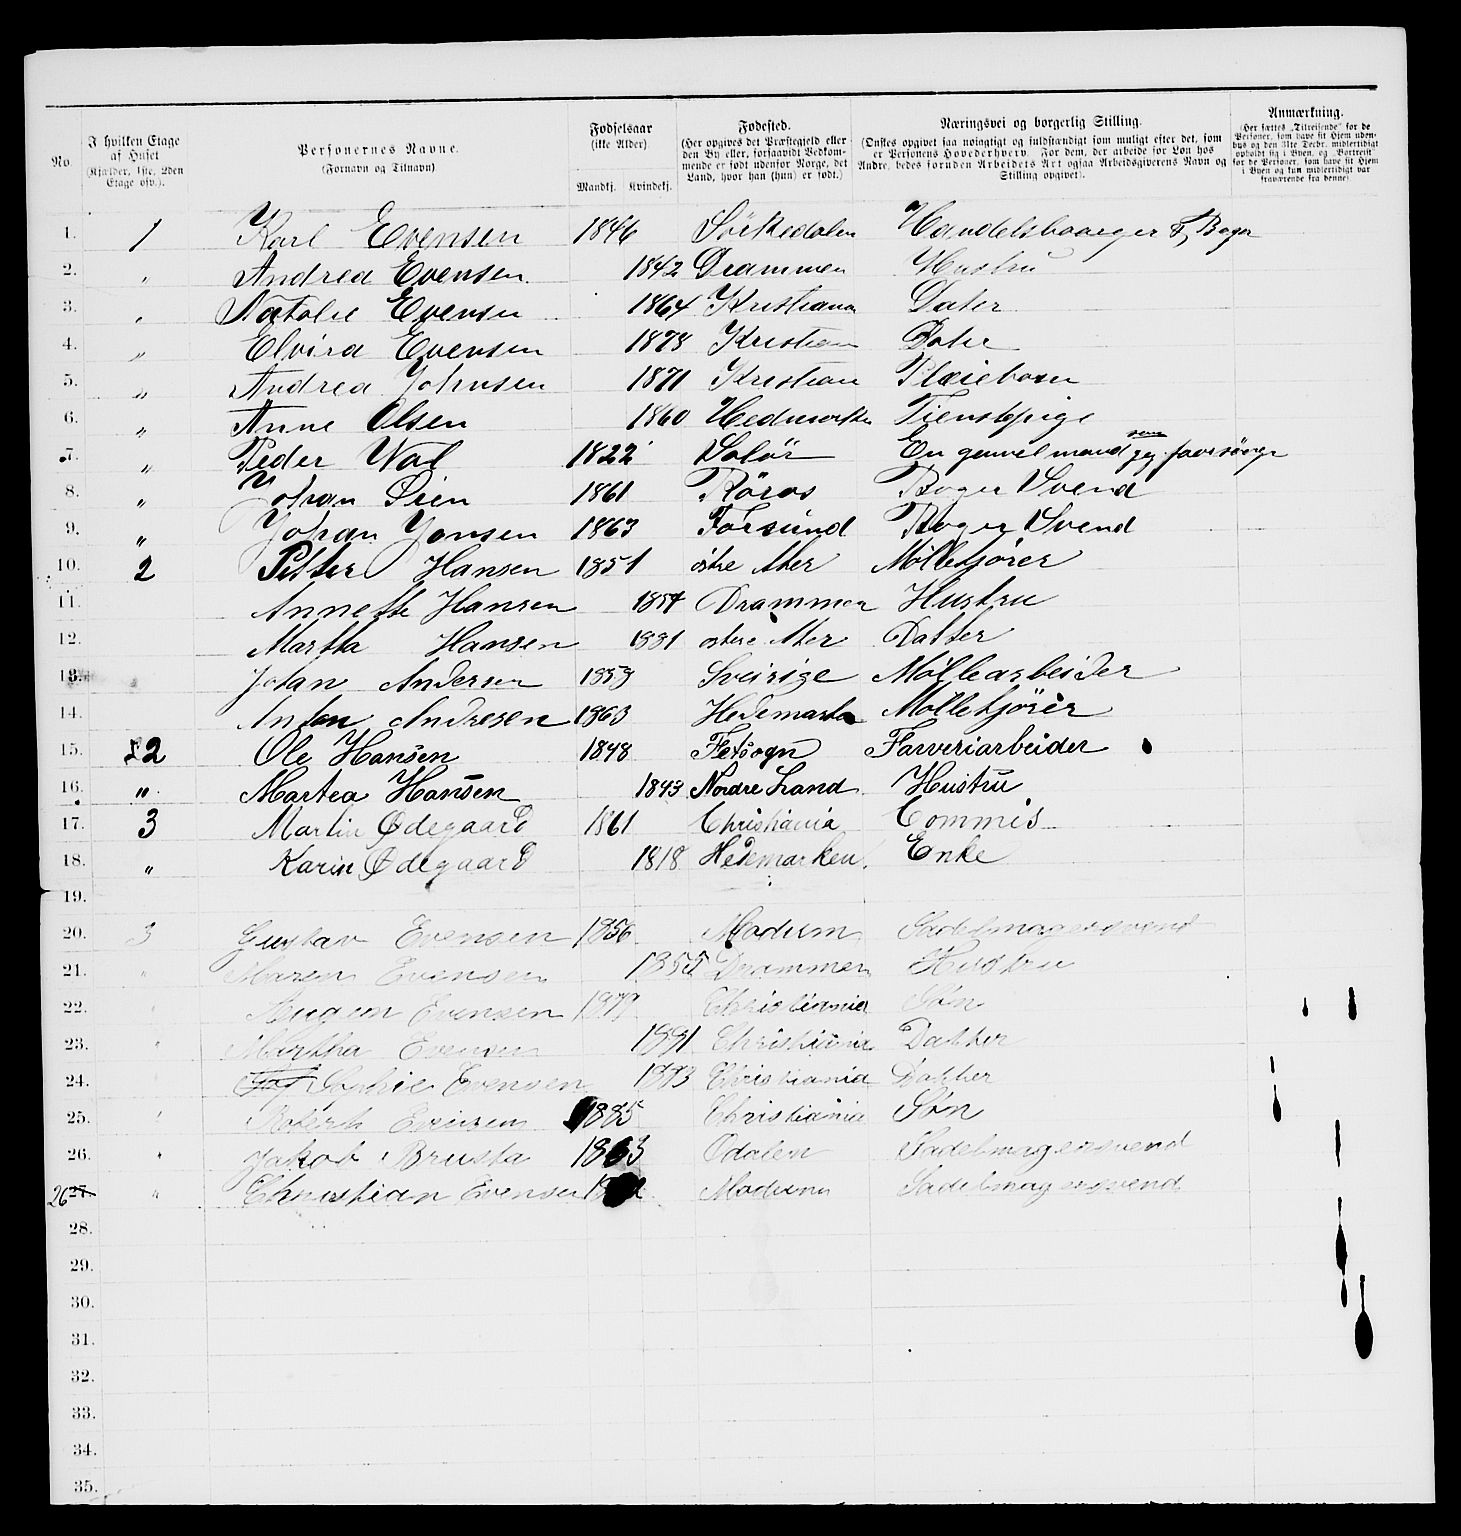 No. I hvilken Etage af Huset (Kjælder, 1ste, 2den Etage osv.). Personernes Navne. (Fornavn og Tilnavn) Fødselsaar (ikke Alder) Mandkj. Kvindekj. Fødested. (Her opgives det Præstegjeld eller den By eller, forsaavidt Vedkommende er født udenfor Norge, det Land, hvor han (hun) er født.) Næringsvei og borgerlig Stilling. (Ønskes opgivet saa nøiagtigt og fuldstændigt som muligt efter det, som er Personens Hovederhverv. For dem, der arbeide for Løn hos Andre, bedes foruden Arbeidets Art ogsaa Arbeidsgiverens Navn og Stilling opgivet). Anmærkning. (Her sættes „Tilreisende" for de Personer, som have sit Hjem udenbys og den 31te Decbr. midlertidigt opholdt sig i Byen, og „Bortreist" for de Personer, som have sit Hjem i Byen og kun midlertidigt var fraværende fra denne)
1. 1 Karl Evensen 1846 Sörkedalen Handelsboarger & Bager
2. " Andrea Evensen 1842 Drammen Hustru
3. " Natalie Evensen 1864 Kristiania Dater
4. " Elvira Evensen 1878 Kristian Dater
5. " Andrea Johnsen 1871 Kristian Pleiebarn
6. " Anne Olsen 1860 Hedemarken Tienstpige
7. " Peder Wol 1822 Solör En gamel mand som jeg faarsörge
8. " Johan Öien 1861 Röros Bager Svend
9. " Johan Jonsen 1863 Farsund Bager Svend
10. 2 Petter Hansen 1851 östre Aker Møllekjører
11. Annette Hansen 1854 Drammen Hustru
12. Martha Hansen 1881 östre Aker Datter
13. Johan Andersen 1859 Sveirige Møllearbeider
14. Anton Andresen 1863 Hedemarken Møllekjører
15. 2 Ole Hansen 1848 Fetsogn Farveriarbeider
16. " Martea Hansen 1843 Nordre Land Hustru
17. 3 Martin Ødegaard 1861 Christiania Commis
18. " Karin Ødegaard 1818 Hedemarken Enke
19.
20. 3 Gustav Evensen 1856 Modum Sadelmagersvend
21. " Maren Evensen 1855 Drammen Hustru
22. " Evensen 1877 Christiania Søn
23. " Martha Evensen 1881 Christiania Datter
24. Sophie Evensen 1883 Christiania Datter
25. " Robert Evensen 1885 Christiania Søn
26. " Jakob Brusta 1863 Odalen Sadelmagersvend
26 27. " Christian Evensen Modum Sadelmagersvend
28.
29.
30.
31.
32.
33.
34.
35.